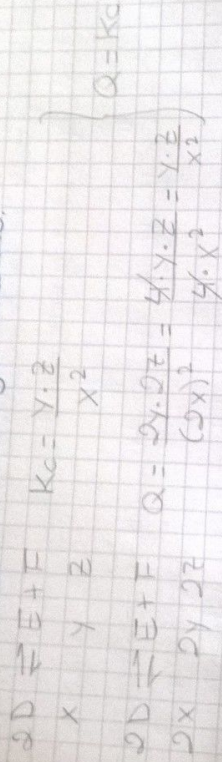 2D ⇌ E + F   Kc = y·z / x²
x   y   z
2D ⇌ E + F   Q = 2y·2z / (2x)² = 4·y·z / 4·x² = y·z / x²   } Q = Kc
2x   2y   2z